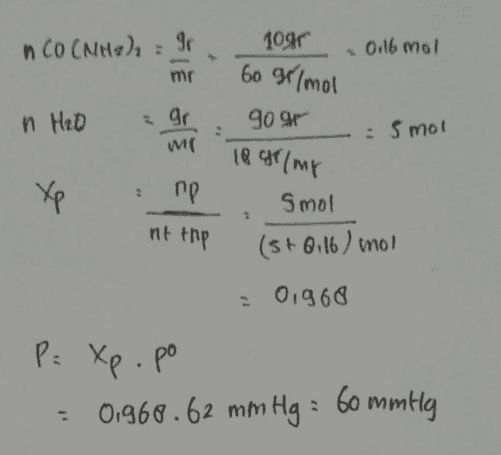 n CO(NH2)2 = gr/mr = 10gr/60 gr/mol = 0,16 mol
n H2O = gr/mr = 90 gr/18 gr/mr = 5 mol
Xp = np/nt+np = 5mol/(5+0,16) mol
= 0,968
P = Xp . p°
= 0,968 . 62 mmHg = 60 mmHg